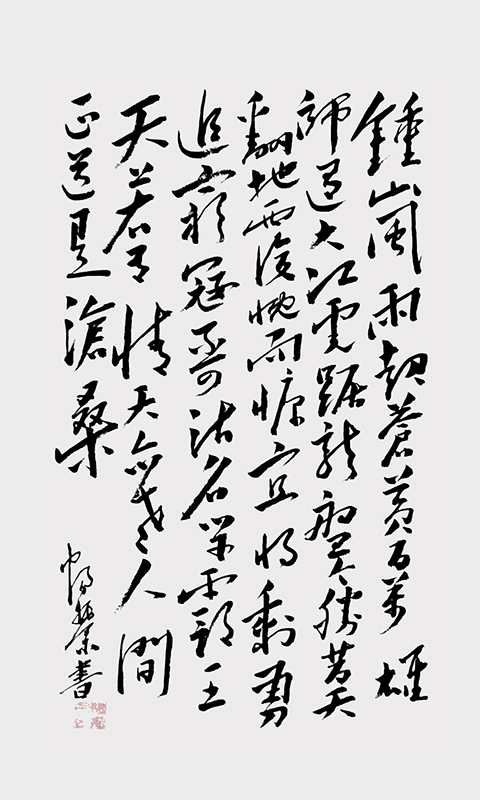 鍾山風雨起蒼黃百萬雄
師過大江虎踞龍盤今勝昔天
翻地覆慨而慷宜將剩勇
追窮寇不可沽名學霸王
天若有情天亦老人間
正道是滄桑
書